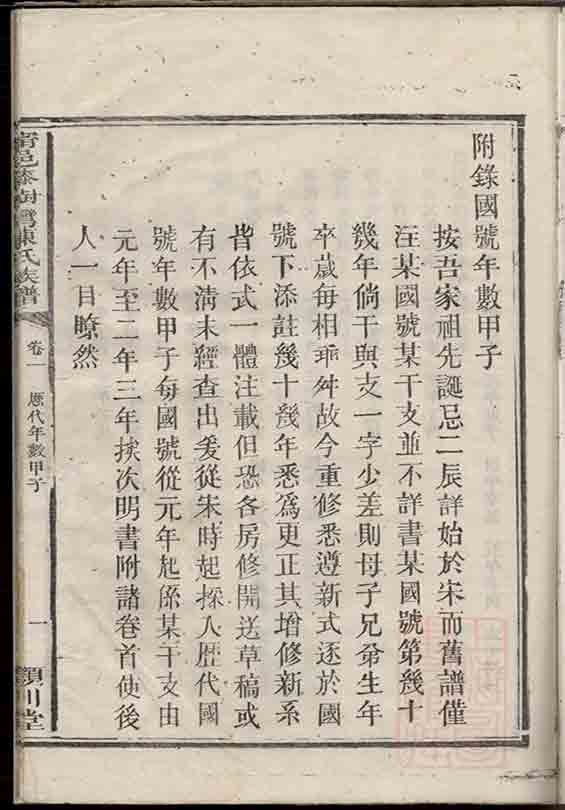 附錄國號年數甲子
按吾家祖先誕忌二辰詳始於宋而舊譜僅
注某國號某干支並不詳書某國號第幾十
幾年倘干與支一字少差則母子兄弟生年
卒歲每相乖舛故今重修悉遵新式逐於國
號下添註幾十幾年悉爲更正其增修新系
皆依式一體注載但恐各房修開送草稿或
有不清未經查出爰從宋時起採入歷代國
號年數甲子每國號從元年起係某干支由
元年至二年三年挨次明書附諸卷首使後
人一目瞭然
甯邑漆樹灣陳氏族譜
卷一 歷代年數甲子
一
潁川堂